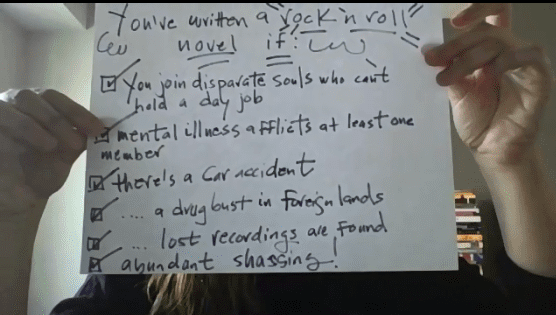 You've written a rock 'n roll
novel if:
You join disparate souls who can't
hold a day job
mental illness afflicts at least one
member
there's a car accident
.... a drug bust in foreign lands
... lost recordings are found
abundant shagging!